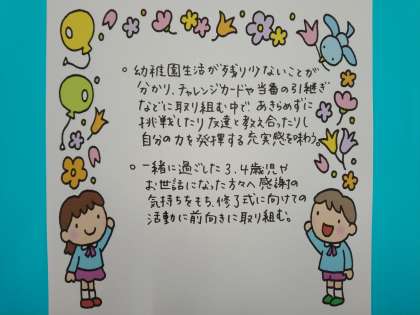 ○ 幼稚園生活が残り少ないことが
分かり、チャレンジカードや当番の引継ぎ
などに取り組む中で、あきらめずに
挑戦したり友達と教え合ったりし
自分の力を発揮する充実感を味わう。
○ 一緒に過ごした3.4歳児や
お世話になった方々へ感謝の
気持ちをもち、修了式に向けての
活動に前向きに取り組む。